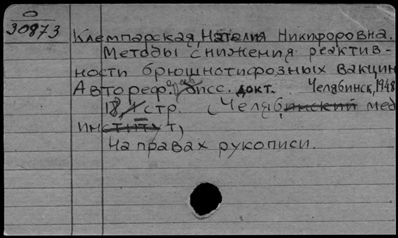 О
30873
Клемпарская, Наталия Никифоровна.
Методы снижения реактив-
ности брюшнотифозных вакцин
Автореф. дисс. докт. Челябинск, 1948
18 стр. (Челябинский мед
институт)
На правах рукописи.